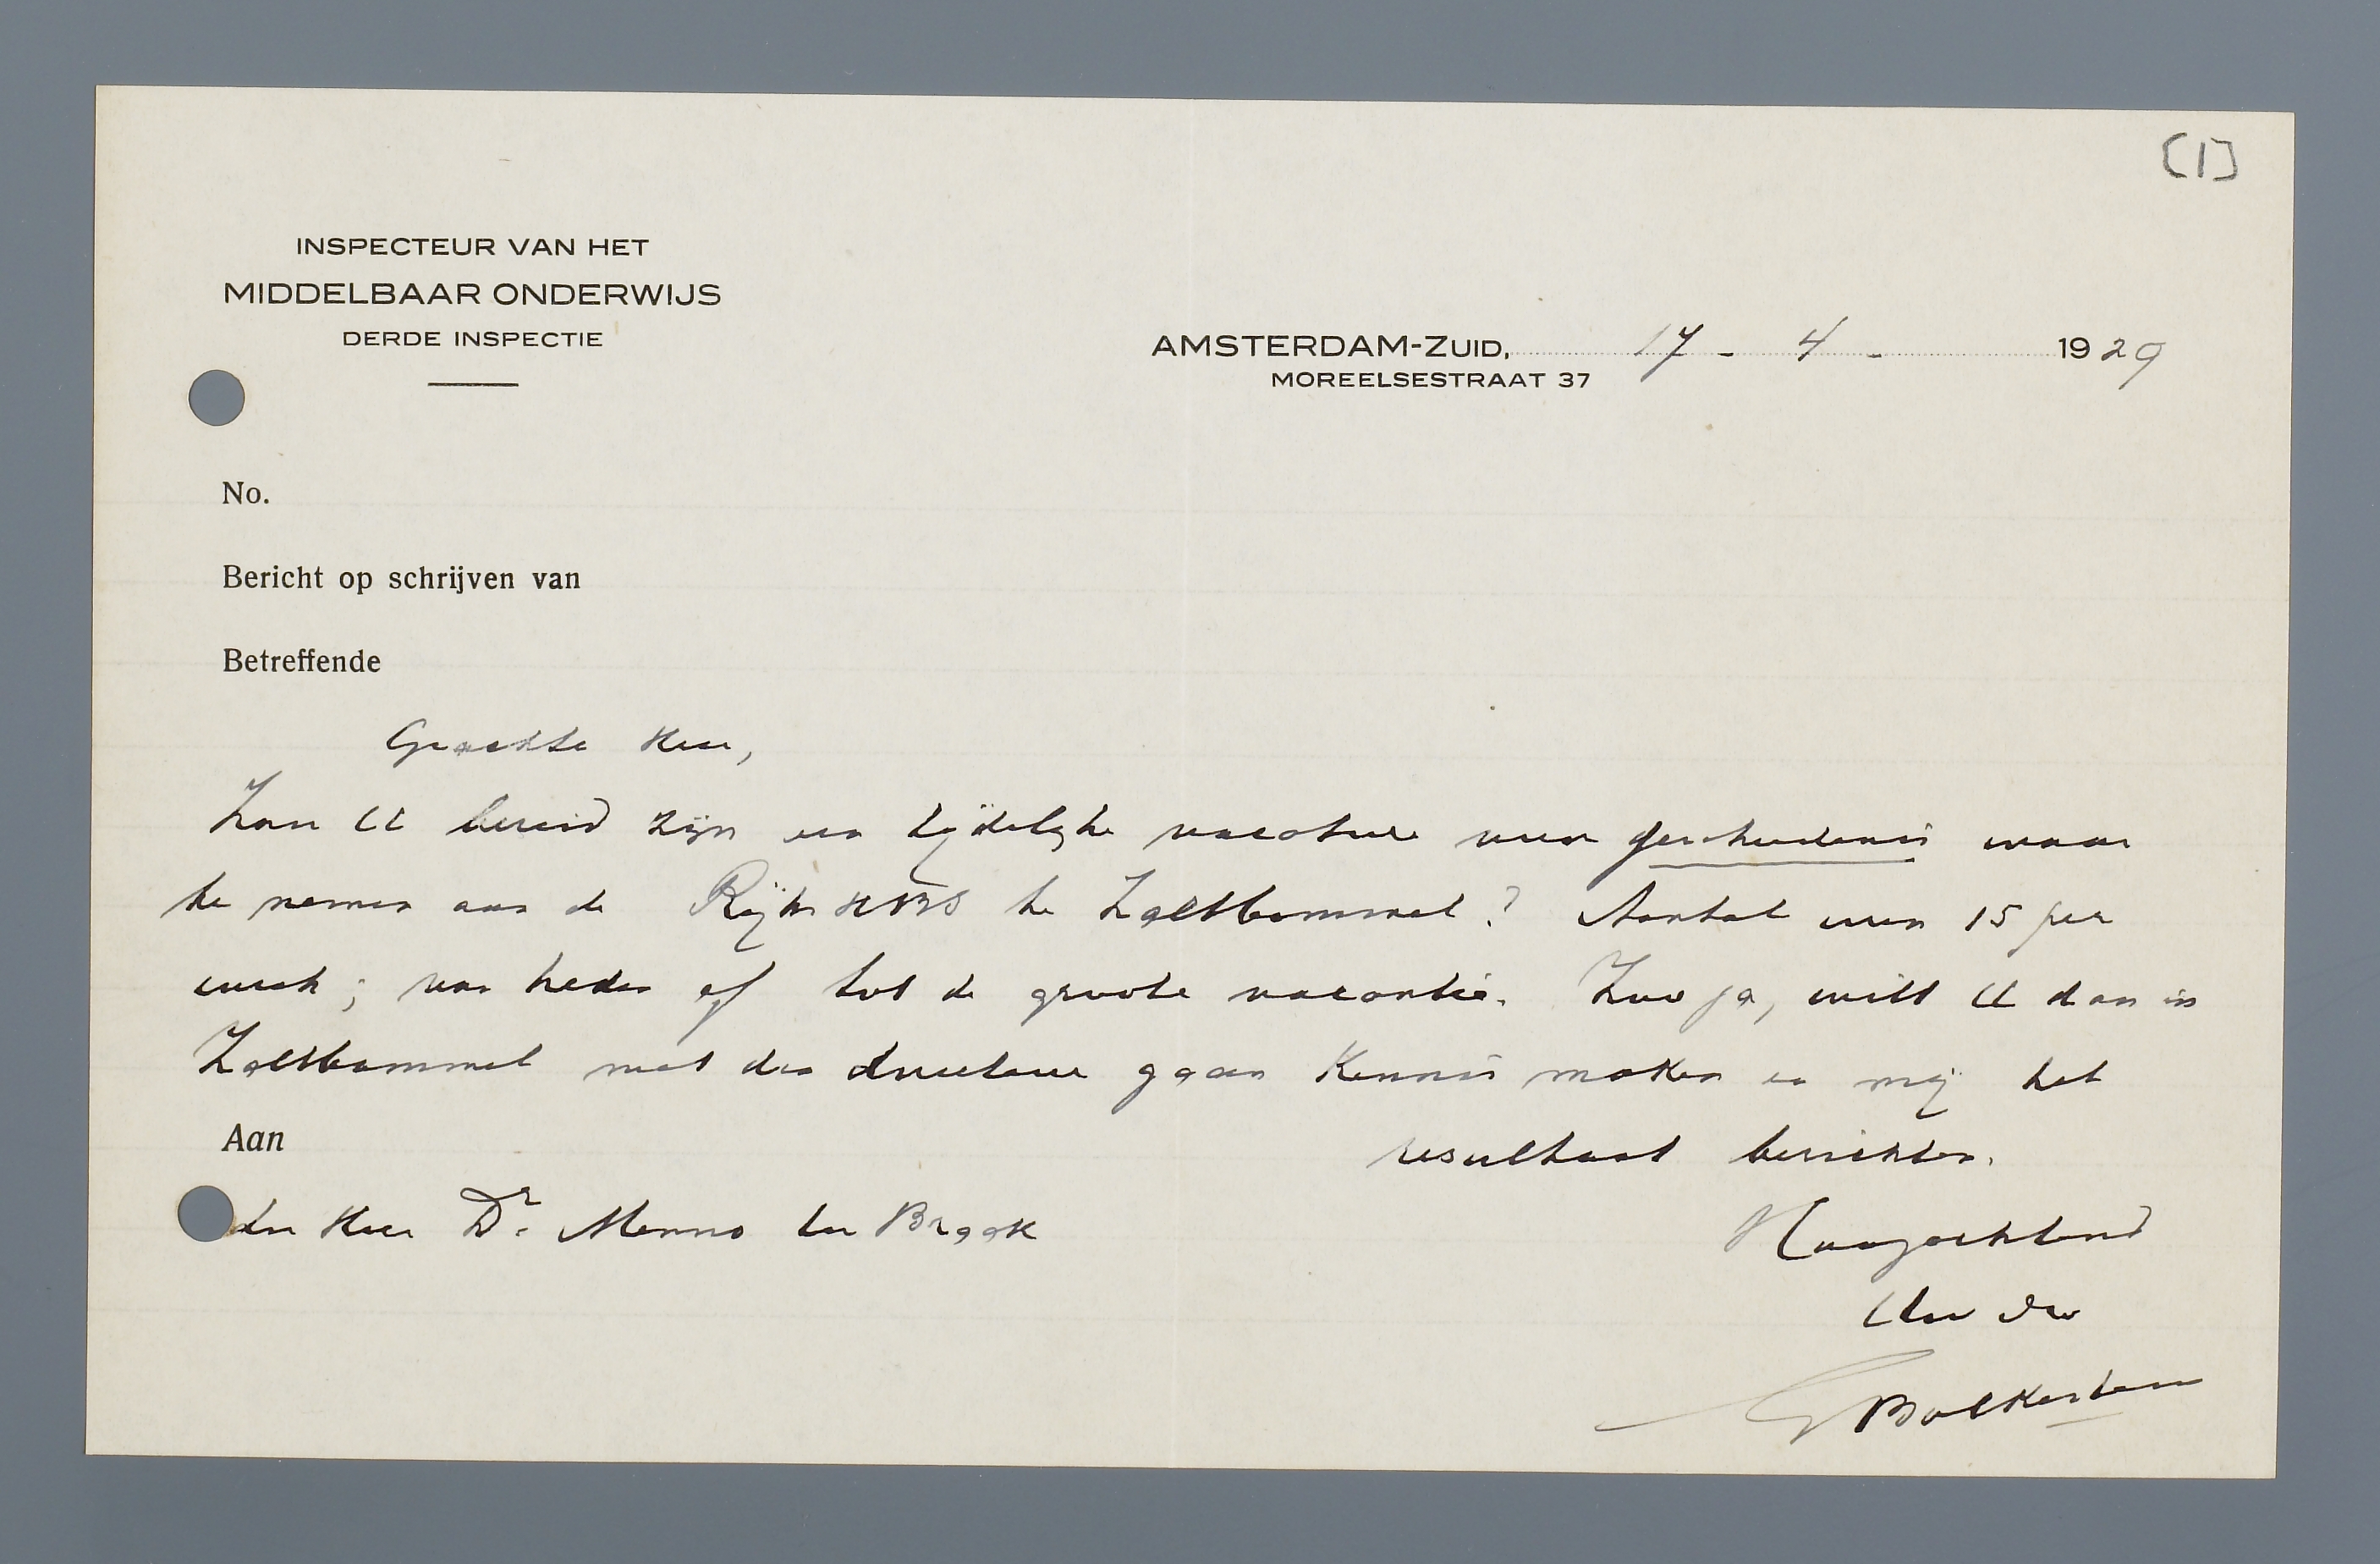 [1]
INSPECTEUR VAN HET
MIDDELBAAR ONDERWIJS
DERDE INSPECTIE
AMSTERDAM-ZUID, 17 - 4 - 1929
MOREELSESTRAAT 37
No.
Bericht op schrijven van
Betreffende
Geachte Heer,
Zou U bereid zijn een tijdelijke vacature voor geschiedenis waar
te nemen aan de Rijks HBS te Zaltbommel? Aantal uren 15 per
week; van heden af tot de groote vacantie. Zoo ja, wilt U dan in
Zaltbommel met den directeur gaan kennis maken en mij het
resultaat berichten.
Aan
den Heer Dr. Menno ter Braak
Hoogachtend
Uw dw
G Bolkestein